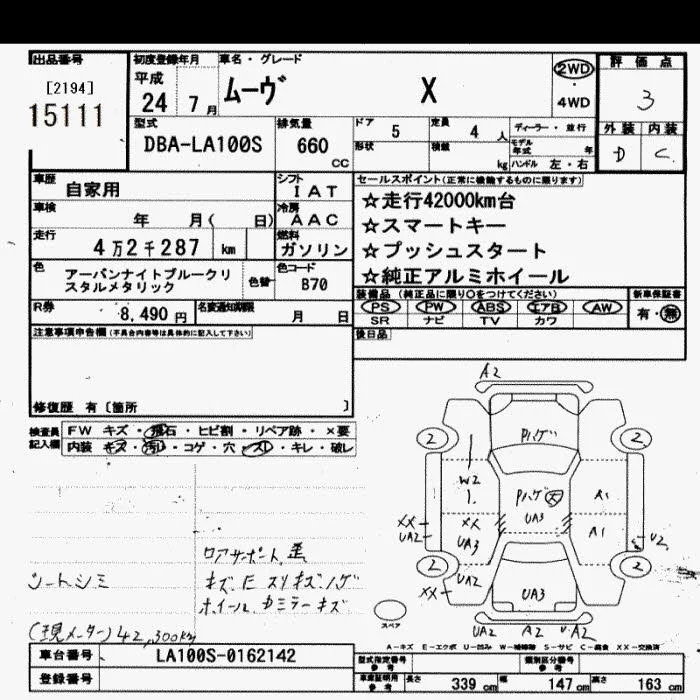 出品番号 初度登録年月 車名・グレード 評価点
[2194] 平成 ムーヴ X 2WD ・ 4WD 3
15111 24 7月
型式 排気量 ドア 5 定員 4人 ディーラー・並行 外装 内装
DBA-LA100S 660 CC 形状 積載 kg モデル年式 年 ハンドル 左・右 D C
車歴 自家用 シフト IAT セールスポイント(正常に機能するものに限ります)
車検 年 月( 日) 冷房 AAC ☆走行42000km台
走行 4万2千287 km 燃料 ガソリン ☆スマートキー
色 アーバンナイトブルークリスタルメタリック 色替 色コード B70 ☆プッシュスタート
☆純正アルミホイール
R券 8,490円 名変通知期限 月 日 装備品(純正品に限り○をつけてください) 新車保証書
PS PW ABS エアB AW 有・無
SR ナビ TV カワ
注意事項申告欄(不具合内容等は具体的に記入して下さい) 後日品
修復歴 有〔箇所 〕
検査員記入欄 FW キズ・飛石・ヒビ割・リペア跡・×要
内装 キズ・汚れ・コゲ・穴・スレ・キレ・破レ
A2
2 2
Pハゲ
W2
Pハゲ 大 A1
UA3
XX XX A1
UA2 UA3 U2
2 UA2 2
XX UA3
UA2 A2 UA2
ロアサポート歪
シートシミ
ホイール、ドミラーキズ
(現メーター)42,300km
スペア
A-キズ E-エクボ U-凹み W-補修跡 S-サビ C-腐食 XX-交換済
車台番号 LA100S-0162142 型式指定番号 参考 類別区分番号 参考
登録番号 車庫証明用 参考 長さ 339 cm 幅 147 cm 高さ 163 cm